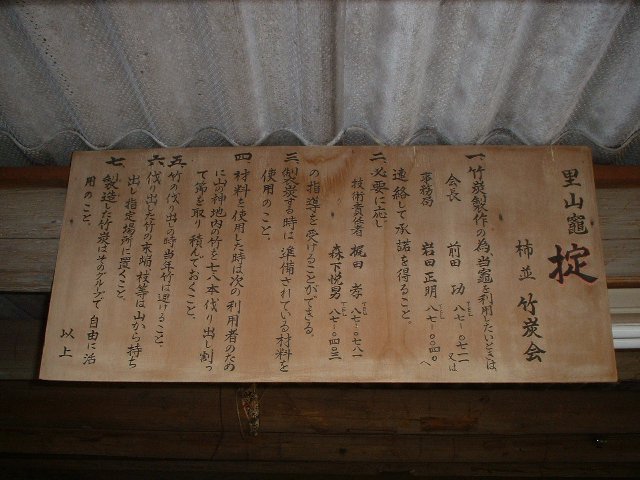 里山竈 掟
柿並 竹炭会
一、竹炭製作の為、当竈を利用したいときは
会長 前田 功 八七-〇七一一 又は
事務局 岩田正明 八七-〇四〇 へ
連絡して承諾を得ること。
二、必要に応じ
技術責任者 梶田 孝 八七-〇七八一
森下悦男 八七-〇四〇三
の指導を受けることができる。
三、製炭する時は準備されている材料を
使用のこと。
四、材料を使用した時は次の利用者のため
に山の神地内の竹を七、八本伐り出し割っ
て節を取り積んでおくこと。
五、竹の伐り出の時当年竹は避けること。
六、伐り出した竹の末梢、枝等は山から持ち
出し指定場所に置くこと。
七、製造した竹炭はそのグループで自由に治
用のこと。
以上